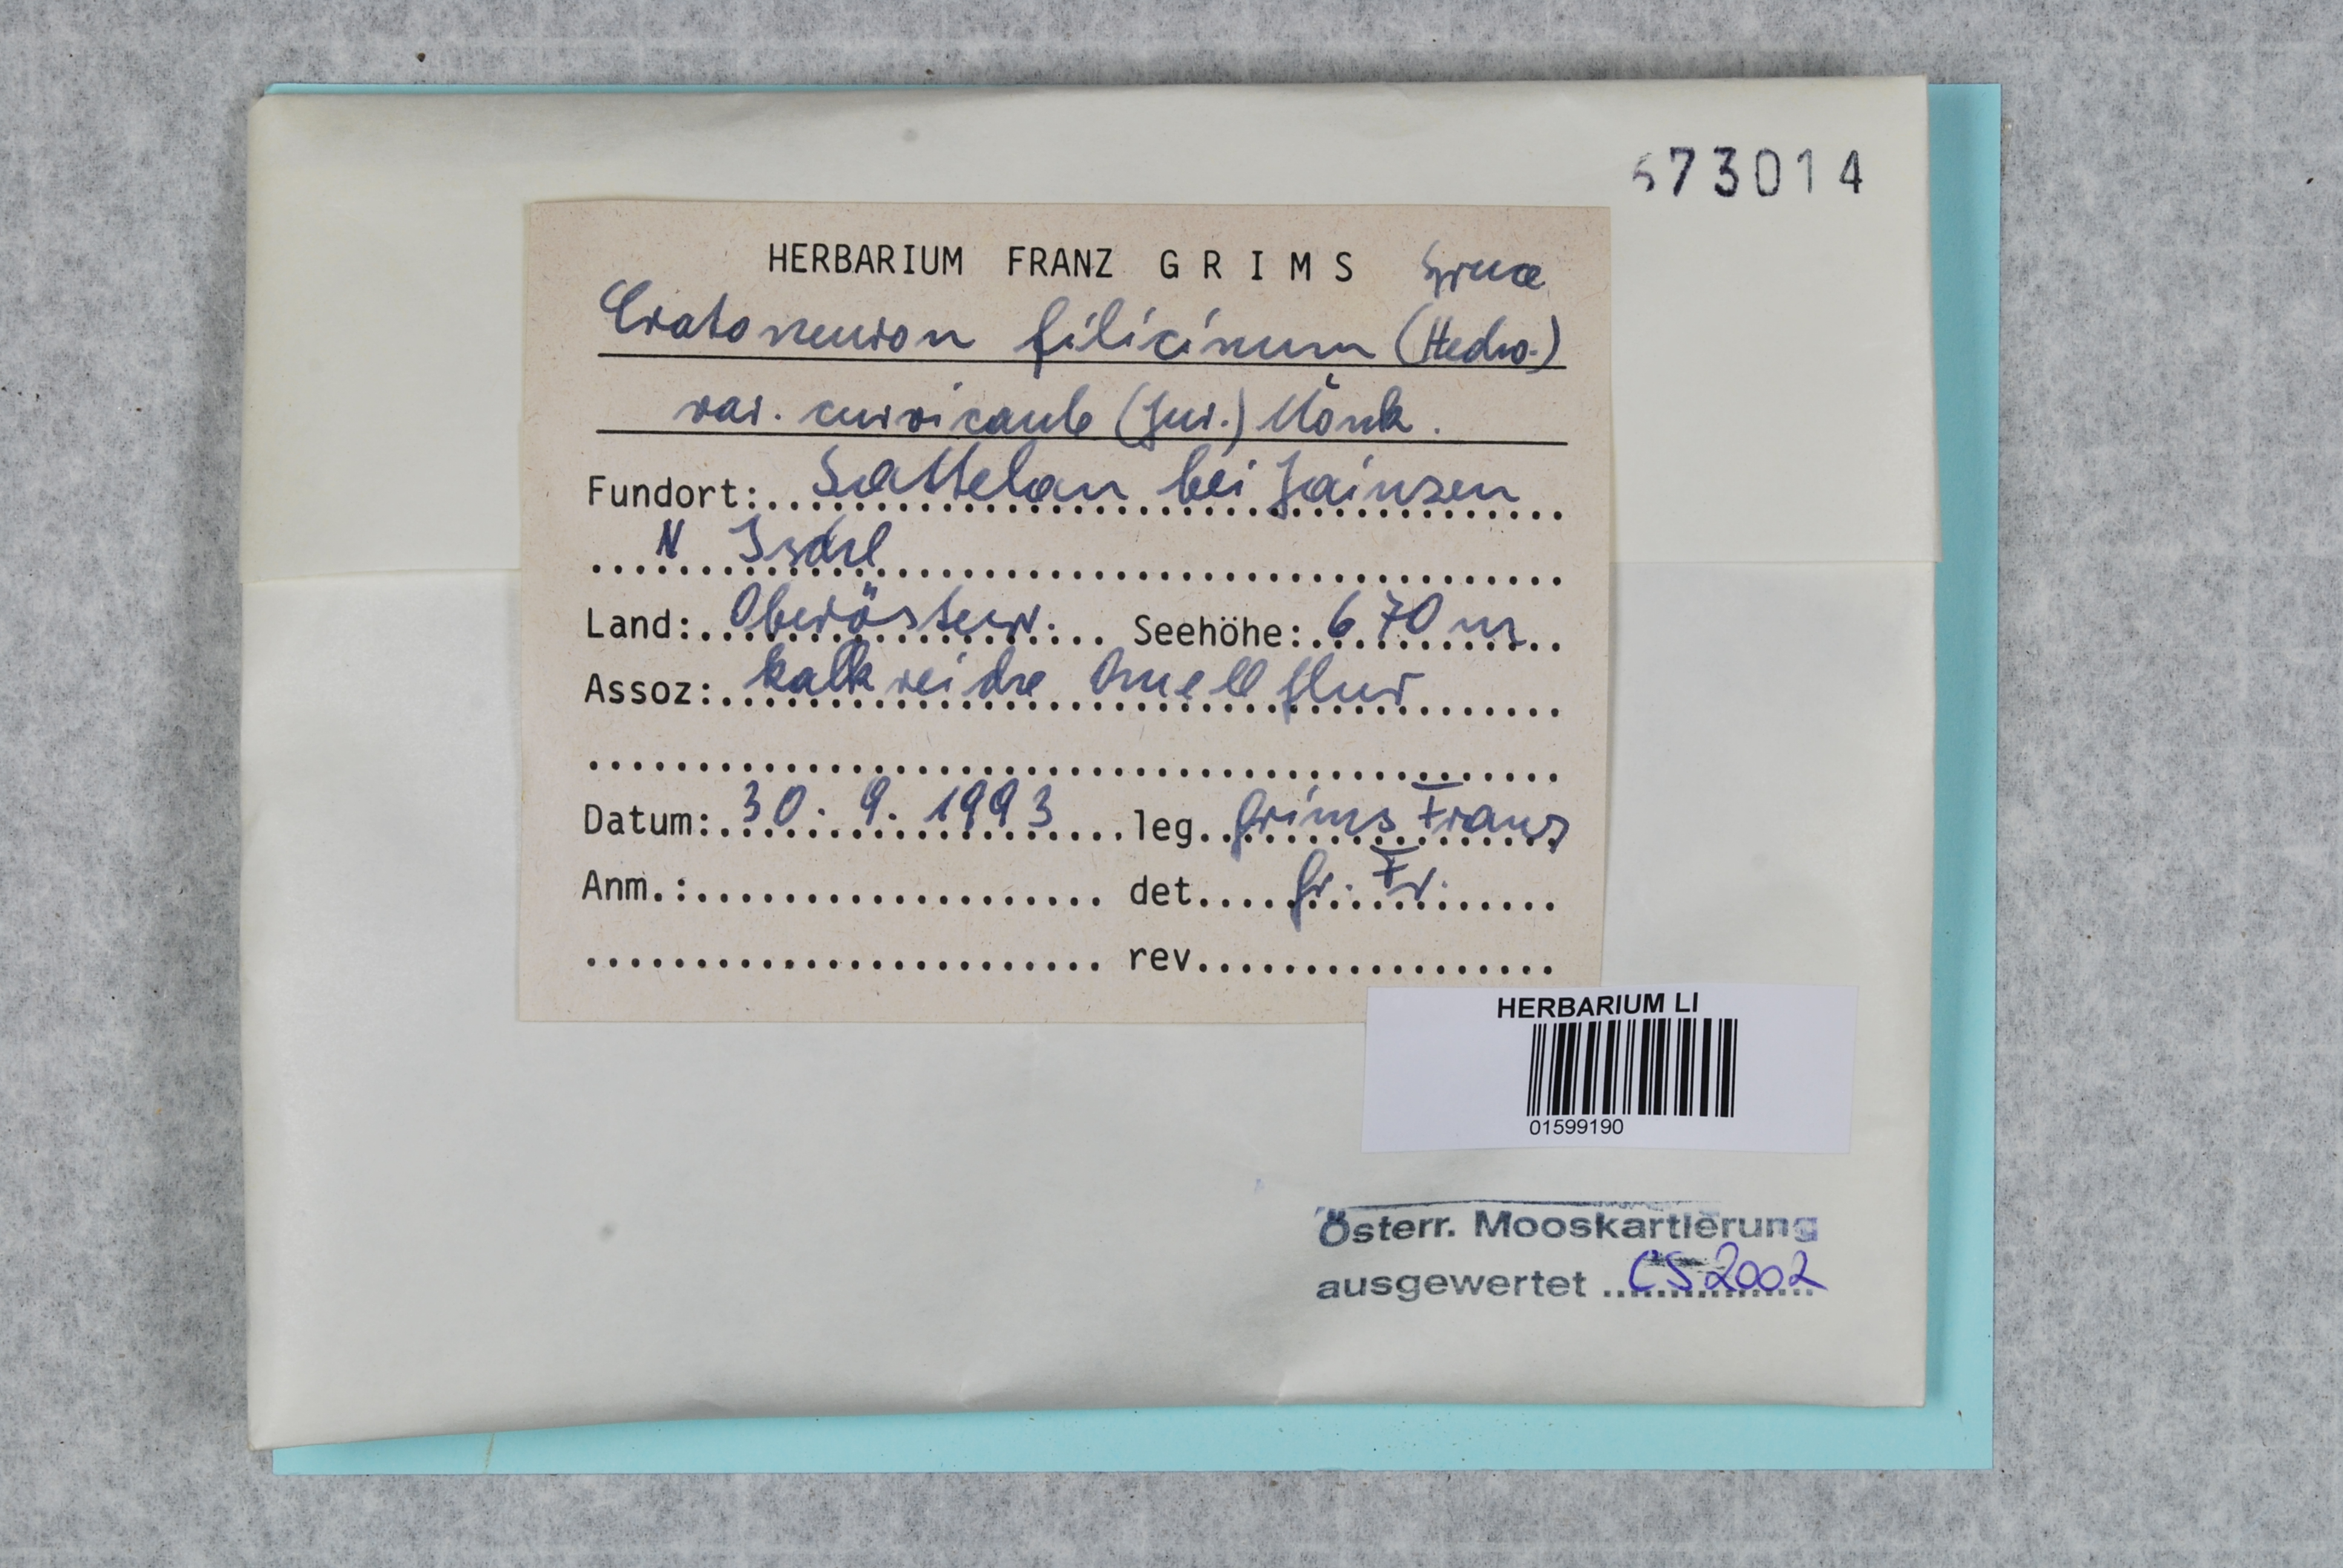 673014
HERBARIUM FRANZ GRIMS Spruce
Cratoneuron filicinum (Hedw.)
var. curvicaule (Jur.) Mönk.
Fundort: Sattelau bei Jainzen
N Ischl
Land: Oberösterr. Seehöhe: 670 m
Assoz: kalkreiche Quellflur
Datum: 30. 9. 1993 leg. Grims Franz
Anm.: det. Gr. Fr.
rev.
HERBARIUM LI
01599190
Österr. Mooskartierung
ausgewertet CS 2002